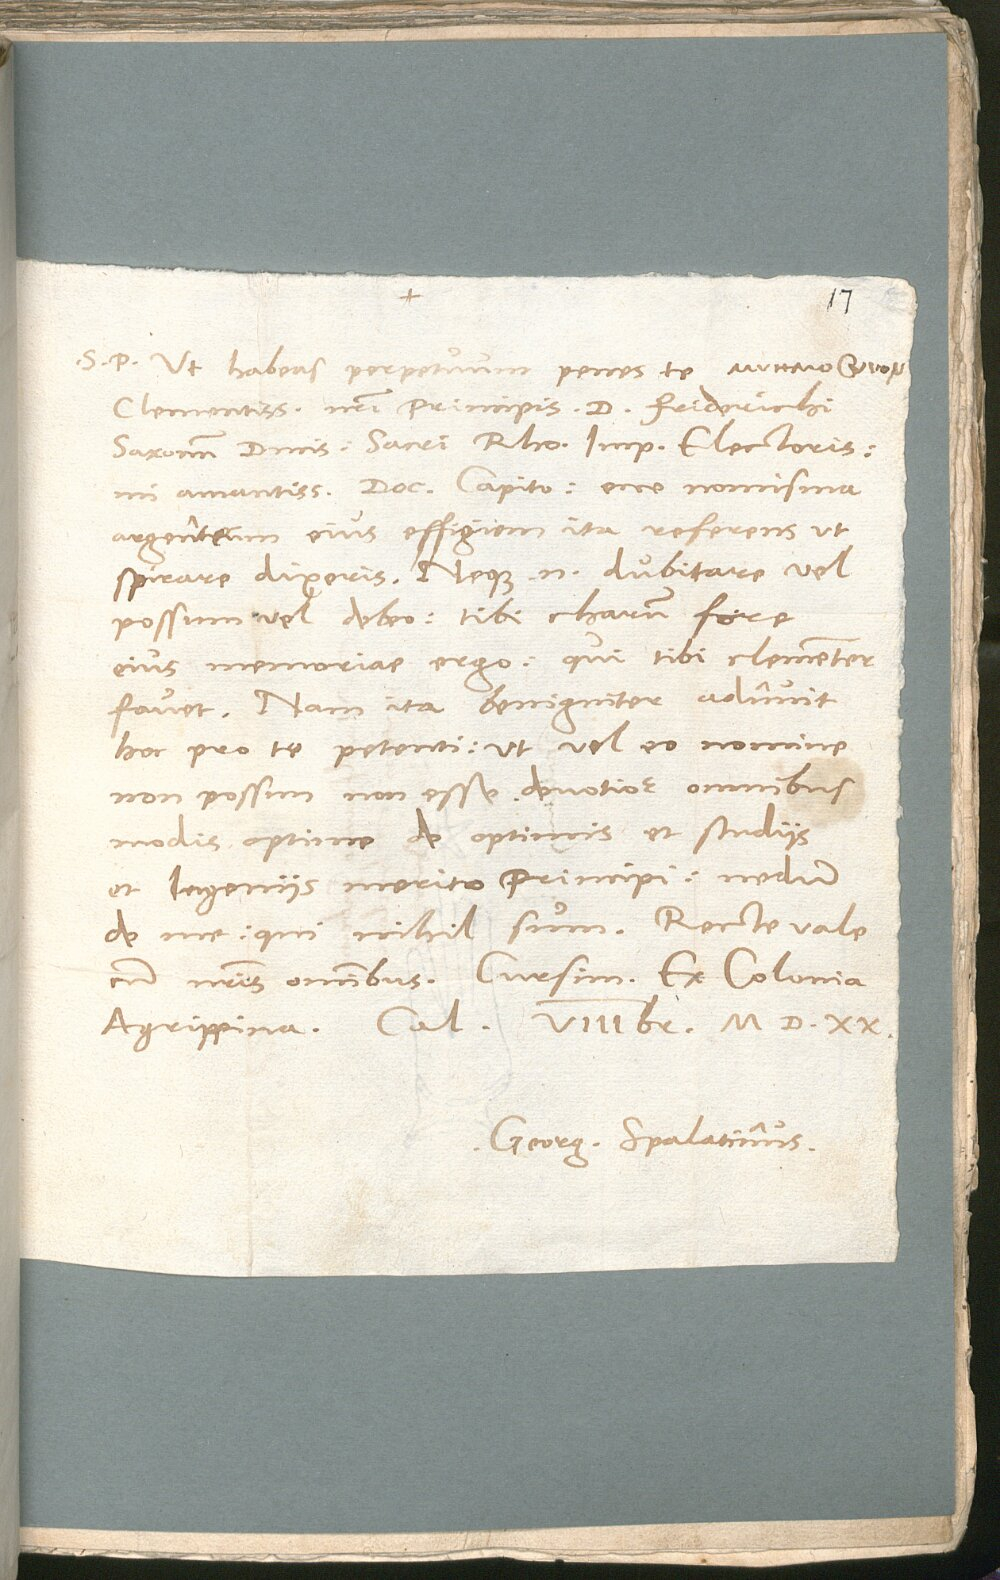 17
+
.S. P. Vt habeas perpetuum penes te μνημοσυνον
Clementiss. nrī Principis. D. Friderichi
Saxonū Ducis: Sacri Rho. Imp. Electoris:
mi amantiss. Doc. Capito: ecce nomisma
argenteum eius effigiem ita referens vt
spirare dixeris. Neqꝫ .n. dubitare vel
possum vel debeo: tibi charū fore
eius memoriae ergo: qui tibi clemēter
fauet. Nam ita benigniter adnuit
hoc pro te petenti: vt vel eo nomine
non possim non esse deuotior omnibus
modis optime de optimis et studijs
et Ingenijs merito Principi: nedū
de me: qui nihil sum. Recte vale
cū nrīs omībus. Cursim. Ex Colonia
Agrippina. Cal. VIIIIbr. M D. XX.
.Georg. Spalatinus.